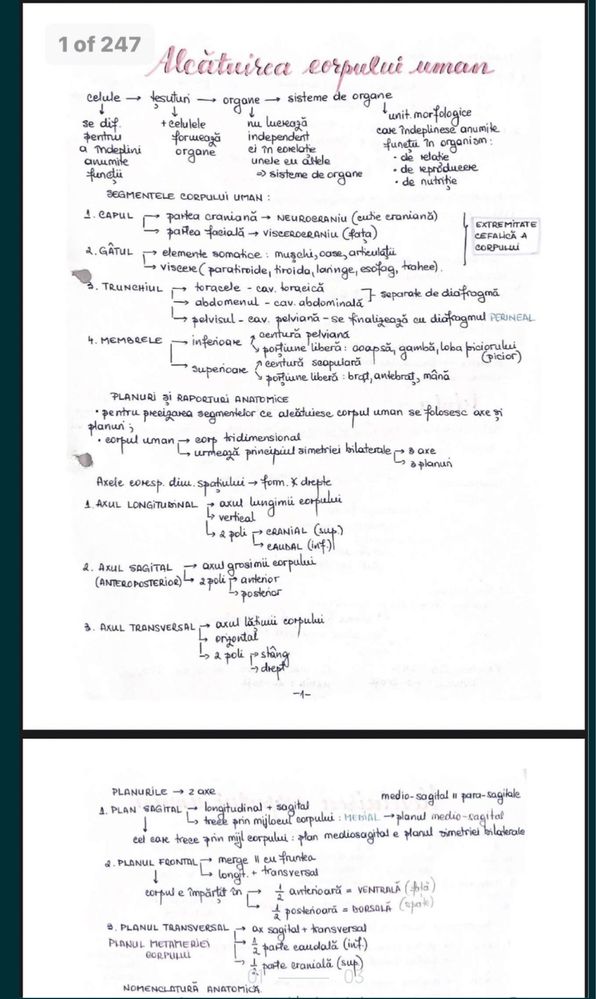 1 of 247
Alcătuirea corpului uman
celule → țesuturi → organe → sisteme de organe
se dif. pentru a îndeplini anumite funcții
+ celulele formează organe
nu lucrează independent ci în corelație unele cu altele ⇒ sisteme de organe
unit. morfologice care îndeplinesc anumite funcții în organism:
• de relație
• de reproducere
• de nutriție
SEGMENTELE CORPULUI UMAN:
1. CAPUL → partea craniană → NEUROCRANIU (cutie craniană)
→ partea facială → VISCEROCRANIU (fața)
EXTREMITATE CEFALICĂ A CORPULUI
2. GÂTUL → elemente somatice: mușchi, oase, articulații
→ viscere (paratiroide, tiroida, laringe, esofag, trahee).
3. TRUNCHIUL → toracele - cav. toracică
→ abdomenul - cav. abdominală
separate de diafragmă
→ pelvisul - cav. pelviană - se finalizează cu diafragmul PERINEAL
4. MEMBRELE → inferioare → centură pelviană
→ porțiune liberă: coapsă, gambă, laba piciorului (picior)
→ superioare → centură scapulară
→ porțiune liberă: braț, antebraț, mână
PLANURI și RAPORTURI ANATOMICE
• pentru precizarea segmentelor ce alcătuiesc corpul uman se folosesc axe și
planuri;
• corpul uman → corp tridimensional
→ urmează principiul simetriei bilaterale → 3 axe
→ 3 planuri
Axele coresp. dim. spațiului → form. X drepte
1. AXUL LONGITUDINAL → axul lungimii corpului
→ vertical
→ 2 poli → CRANIAL (sup.)
→ CAUDAL (inf.)
2. AXUL SAGITAL → axul grosimii corpului
(ANTEROPOSTERIOR) → 2 poli → anterior
→ posterior
3. AXUL TRANSVERSAL → axul lățimii corpului
→ orizontal
→ 2 poli → stâng
→ drept
-1-
PLANURILE → 2 axe
medio-sagital || para-sagitale
1. PLAN SAGITAL → longitudinal + sagital
→ trece prin mijlocul corpului: MEDIAL → planul medio-sagital
cel care trece prin mijl corpului: plan mediosagital e planul simetriei bilaterale
2. PLANUL FRONTAL → merge || cu fruntea
→ longit. + transversal
corpul e împărțit în → 1/2 anterioară = VENTRALĂ (față)
→ 1/2 posterioară = DORSALĂ (spate)
3. PLANUL TRANSVERSAL → ax sagital + transversal
PLANUL METAMERIEI CORPULUI
→ 1/2 parte caudală (inf.)
→ 1/2 parte cranială (sup.)
NOMENCLATURĂ ANATOMICĂ